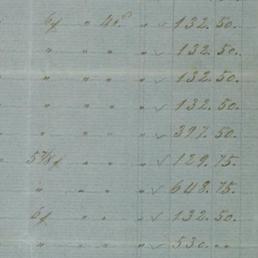 6f " 40° " ✓ 132.50.
" " " ✓ 132.50.
" " " ✓ 132.50.
" " " ✓ 132.50.
" " " ✓ 397.50.
5⅞f " " " ✓ 129.75.
" " " " ✓ 648.75.
6f " " " ✓ 132.50.
" " " " ✓ 530. " "